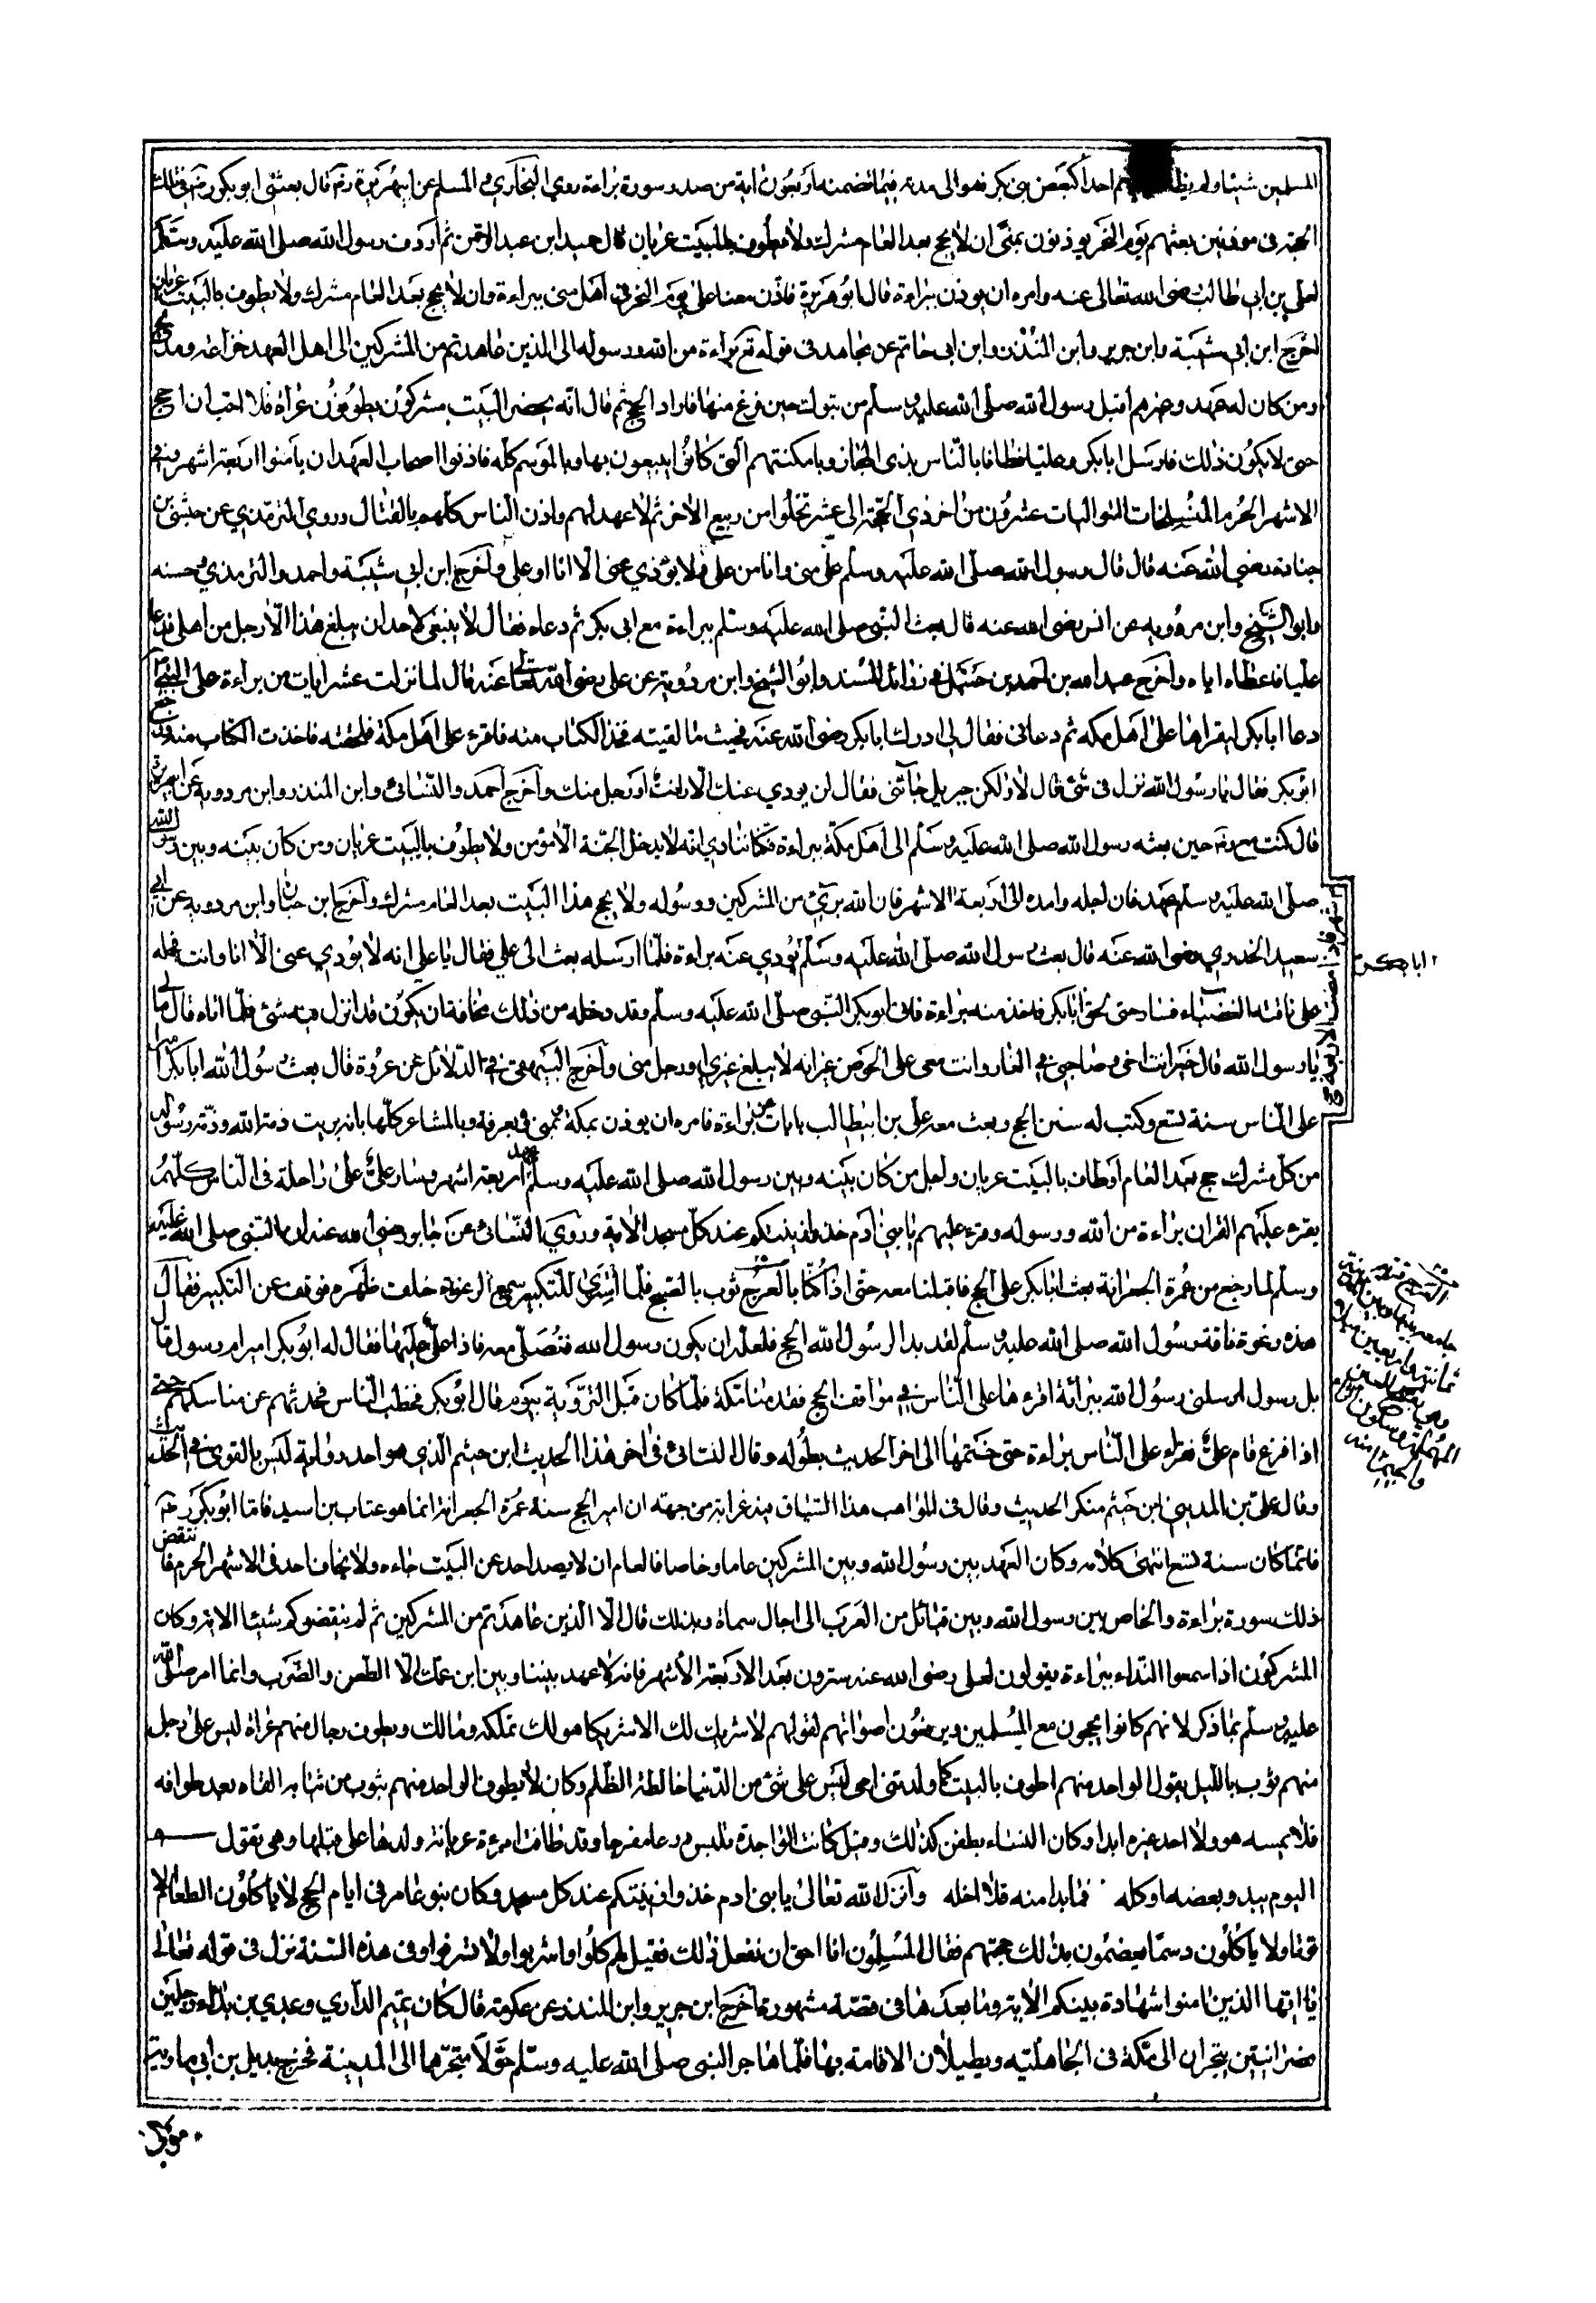 المسلمين شيئا ولم يظا هم احدا كبعض بني بكر فهو الى مدته فيما تضمنه اربعون اية من صدر سورة براءة روي البخاري و المسلم عن ابيهريرة رضه قال بعثني ابو بكر رضه في تلك
الحجة في موذنين بعثهم يوم النحر يوذنون بمنى ان لا يحج بعد العام مشرك ولا يطوف بالبيت عريان قال حميد ابن عبد الرحمن ثم اردف رسول الله صلى الله عليه وسلم
لعلي بن ابي طالب رضى الله تعالى عنه وامره ان يوذن ببراءة قال ابو هريرة فاذن معنا علي يوم النحر في اهل منى ببراءة وان لا يحج بعد العام مشرك ولا يطوف بالبيت عريان
اخرج ابن ابي شيبة وابن جرير وابن المنذر وابن ابي حاتم عن مجاهد في قوله تع براءة من الله ورسوله الى الذين عاهدتم من المشركين الى اهل العهد خزاعة ومدلج
ومن كان له عهد وغيرهم اقبل رسول الله صلى الله عليه وسلم من تبوك حين فرغ منها فاراد الحج ثم قال انه يحضر البيت مشركون يطوفون عراة فلا احب ان احج
حتى لا يكون ذلك فارسل ابا بكر وعليا فطافا بالناس بذى المجاز وبامكنتهم التي كانوا يبيعون بها وبالموسم كله فاذنوا اصحاب العهد ان يامنوا اربعة اشهر وهي
الاشهر الحرم المنسلخات المتواليات عشرون من اخر ذي الحجة الى عشر تخلوا من ربيع الاخر ثم لا عهد لهم واذن الناس كلهم بالقتال وروي الترمذي عن حبشي بن
جنادة رضي الله عنه قال قال رسول الله صلى الله عليه وسلم علي مني وانا من علي ولا يؤذي عني الا انا او علي واخرج ابن ابي شيبة واحمد والترمذي وحسنه
وابو الشيخ وابن مردويه عن انس رضى الله عنه قال بعث النبي صلى الله عليه وسلم ببراءة مع ابى بكر ثم دعاه فقال لا ينبغى لاحد ان يبلغ هذا الا رجل من اهلى فدعا
عليا فاعطاه اياه واخرج عبد الله بن احمد بن حنبل في زوائد المسند وابو الشيخ وابن مردويه عن على رضى الله تعالى عنه قال لما نزلت عشر ايات من براءة على النبي
دعا ابا بكر ليقراها على اهل مكه ثم دعانى فقال لي ادرك ابا بكر رضى الله عنه فحيث ما لقيته فخذ الكتاب منه فاقرء على اهل مكة فلحقته فاخذت الكتاب منه ورجع
ابو بكر فقال يا رسول الله نزل في شئ قال لا ولكن جبريل جاءنى فقال لن يودي عنك الا انت او رجل منك واخرج احمد والنسائي وابن المنذر وابن مردويه عن ابيهريرة
قال كنت مع رضه حين بعثه رسول الله صلى الله عليه وسلم الى اهل مكة ببراءة فكنا ننادي انه لا يدخل الجنة الا مؤمن ولا يطوف بالبيت عريان ومن كان بينه وبين رسول الله
صلى الله عليه وسلم عهد فان اجله وامده الى اربعة الاشهر فان الله برئ من المشركين ورسوله ولا يحج هذا البيت بعد العام مشرك واخرج ابن حبان وابن مردويه عن ابي
سعيد الخدري رضى الله عنه قال بعث رسول الله صلى الله عليه وسلم يودي عنه براءة فلما ارسله بعث الى علي فقال يا علي انه لا يؤدي عني الا انا وانت فحمله
على ناقته الغضباء فسار حتى لحق ابا بكر فاخذ منه براءة فاتى ابو بكر النبي صلى الله عليه وسلم وقد دخله من ذلك مخافة ان يكون قد انزل فيه شئ فلما اتاه قال ما لي
يا رسول الله قال خير انت اخى وصاحبي في الغار وانت معى على الحوض غير انه لا يبلغ غيري او رجل منى واخرج البيهقي في الدلائل عن عروة قال بعث رسول الله ابا بكر اميرا
على الناس سنة تسع وكتب له سنن الحج وبعث معه علي بن ابيطالب بايات من براءة فامره ان يوذن بمكة وبمنى وبعرفة وبالمشاعر كلها بانه بريت ذمة الله وذمة رسوله
من كل مشرك حج بعد العام او طاف بالبيت عريان واجل من كان بينه وبين رسول الله صلى الله عليه وسلم عهد اربعة اشهر وسار علي على راحلة في الناس كلهم
يقرء عليهم القران براءة من الله ورسوله وقرء عليهم يا بني ادم خذوا زينتكم عند كل مسجد الاية وروي النسائى عن جابر رضى الله عنه ان النبي صلى الله عليه
وسلم لما رجع من عمرة الجعرانة بعث ابا بكر على الحج فاقبلنا معه حتى اذا كنا بالعرج ثوب بالصبح فلما استوى للتكبير سمع الرغوة خلف ظهره فوقف عن التكبير فقال
هذه رغوة ناقة رسول الله صلى الله عليه وسلم لقد بدا لرسول الله الحج فلعله ان يكون رسول الله فنصلى معه فاذا علي عليها فقال له ابو بكر امير ام رسول قال
بل رسول ارسلنى رسول الله ببرائة اقرءها على الناس في مواقف الحج فقدمنا مكة فلما كان قبل التروية بيوم قال ابو بكر فخطب الناس فحدثهم عن مناسكهم حتى
اذا فرغ قام علي فقراء على الناس براءة حتى ختمها الى اخر الحديث بطوله وقال النسائي في اخر هذا الحديث ابن خيثم الذي هو احد رواته ليس بالقوى في الحديث
وقال علي بن المديني ابن خيثم منكر الحديث وقال في المواهب هذا السياق فيه غرابة من جهته ان امير الحج سنة عمرة الجعرانة انما هو عتاب بن اسيد فاما ابو بكر رضه
فانما كان سنة تسع انتهى كلامه وكان العهد بين رسول الله وبين المشركين عاما وخاصا فالعام ان لا يصد احد عن البيت جاءه ولا يخاف احد في الاشهر الحرم فانتقض
ذلك بسورة براءة والخاص بين رسول الله وبين قبائل من العرب الى اجال سماة وبذلك قال الا الذين عاهدتم من المشركين ثم لم ينقضوكم شيئا الاية وكان
المشركون اذا سمعوا النداء ببراءة يقولون لعلى رضى الله عنه سترون بعد الاربعة الاشهر فانه لا عهد بيننا وبين ابن عمك الا الطعن والضرب وانما امر صلى الله
عليه وسلم بما ذكر لانهم كانوا يحجون مع المسلمين ويرفعون اصواتهم لقولهم لا شريك لك الا شريكا هو لك تملكه وما لك ويطوف رجال منهم عراة ليس على رجل
منهم ثوب بالليل يقول الواحد منهم اطوف بالبيت كما ولدتنى امى ليس على شئ من الدنيا خالطه الظلم وكان لا يطوف الواحد منهم بثوب من ثيابه القاه بعد طوافه
فلا يمسه هو ولا احد غيره ابدا وكان النساء يطفن كذلك وقيل كانت الواحدة تلبس درعا مفرجا وقد طافت امرءة عريانة ويدها على قبلها وهي تقول
اليوم يبدو بعضه او كله فما بدا منه فلا احله وانزل الله تعالى يا بنى ادم خذوا زينتكم عند كل مسجد وكان بنو عامر فى ايام الحج لا ياكلون الطعام الا
قوتا ولا ياكلون دسما يعضمون بذلك حجتهم فقال المسلمون انا احق ان نفعل ذلك فقيل لهم كلوا واشربوا ولا تسرفوا وفى هذه السنة نزل في قوله تعالى
يا ايها الذين امنوا شهادة بينكم الاية وما بعدها فى قصة مشهورة اخرج ابن جرير وابن المنذر عن عكرمة قال كان تميم الداري وعدي بن بداء رجلين
نصرانيين يتجران الى مكة فى الجاهلية ويطيلان الاقامة بها فلما هاجر النبي صلى الله عليه وسلم حولا متجرهما الى المدينة فخرج بديل بن ابي ماوية
مولى
ابا بكر